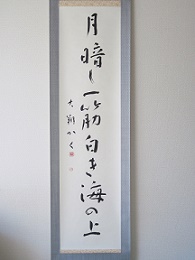 月暗し一筋白き海の上
大獅かく